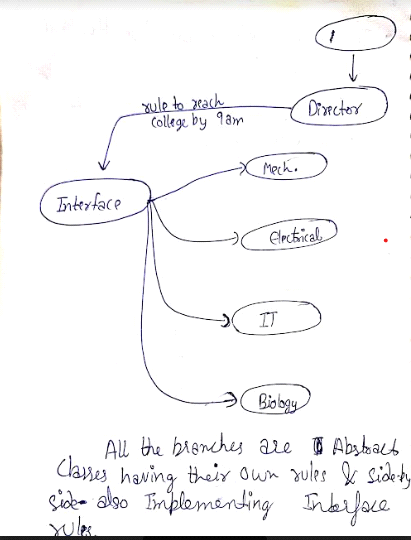 1
Director
rule to reach
College by 9am
Mech.
Interface
Electrical
IT
Biology
All the branches are Abstract
Classes having their own rules & side by
side also Implementing Interface
rules.